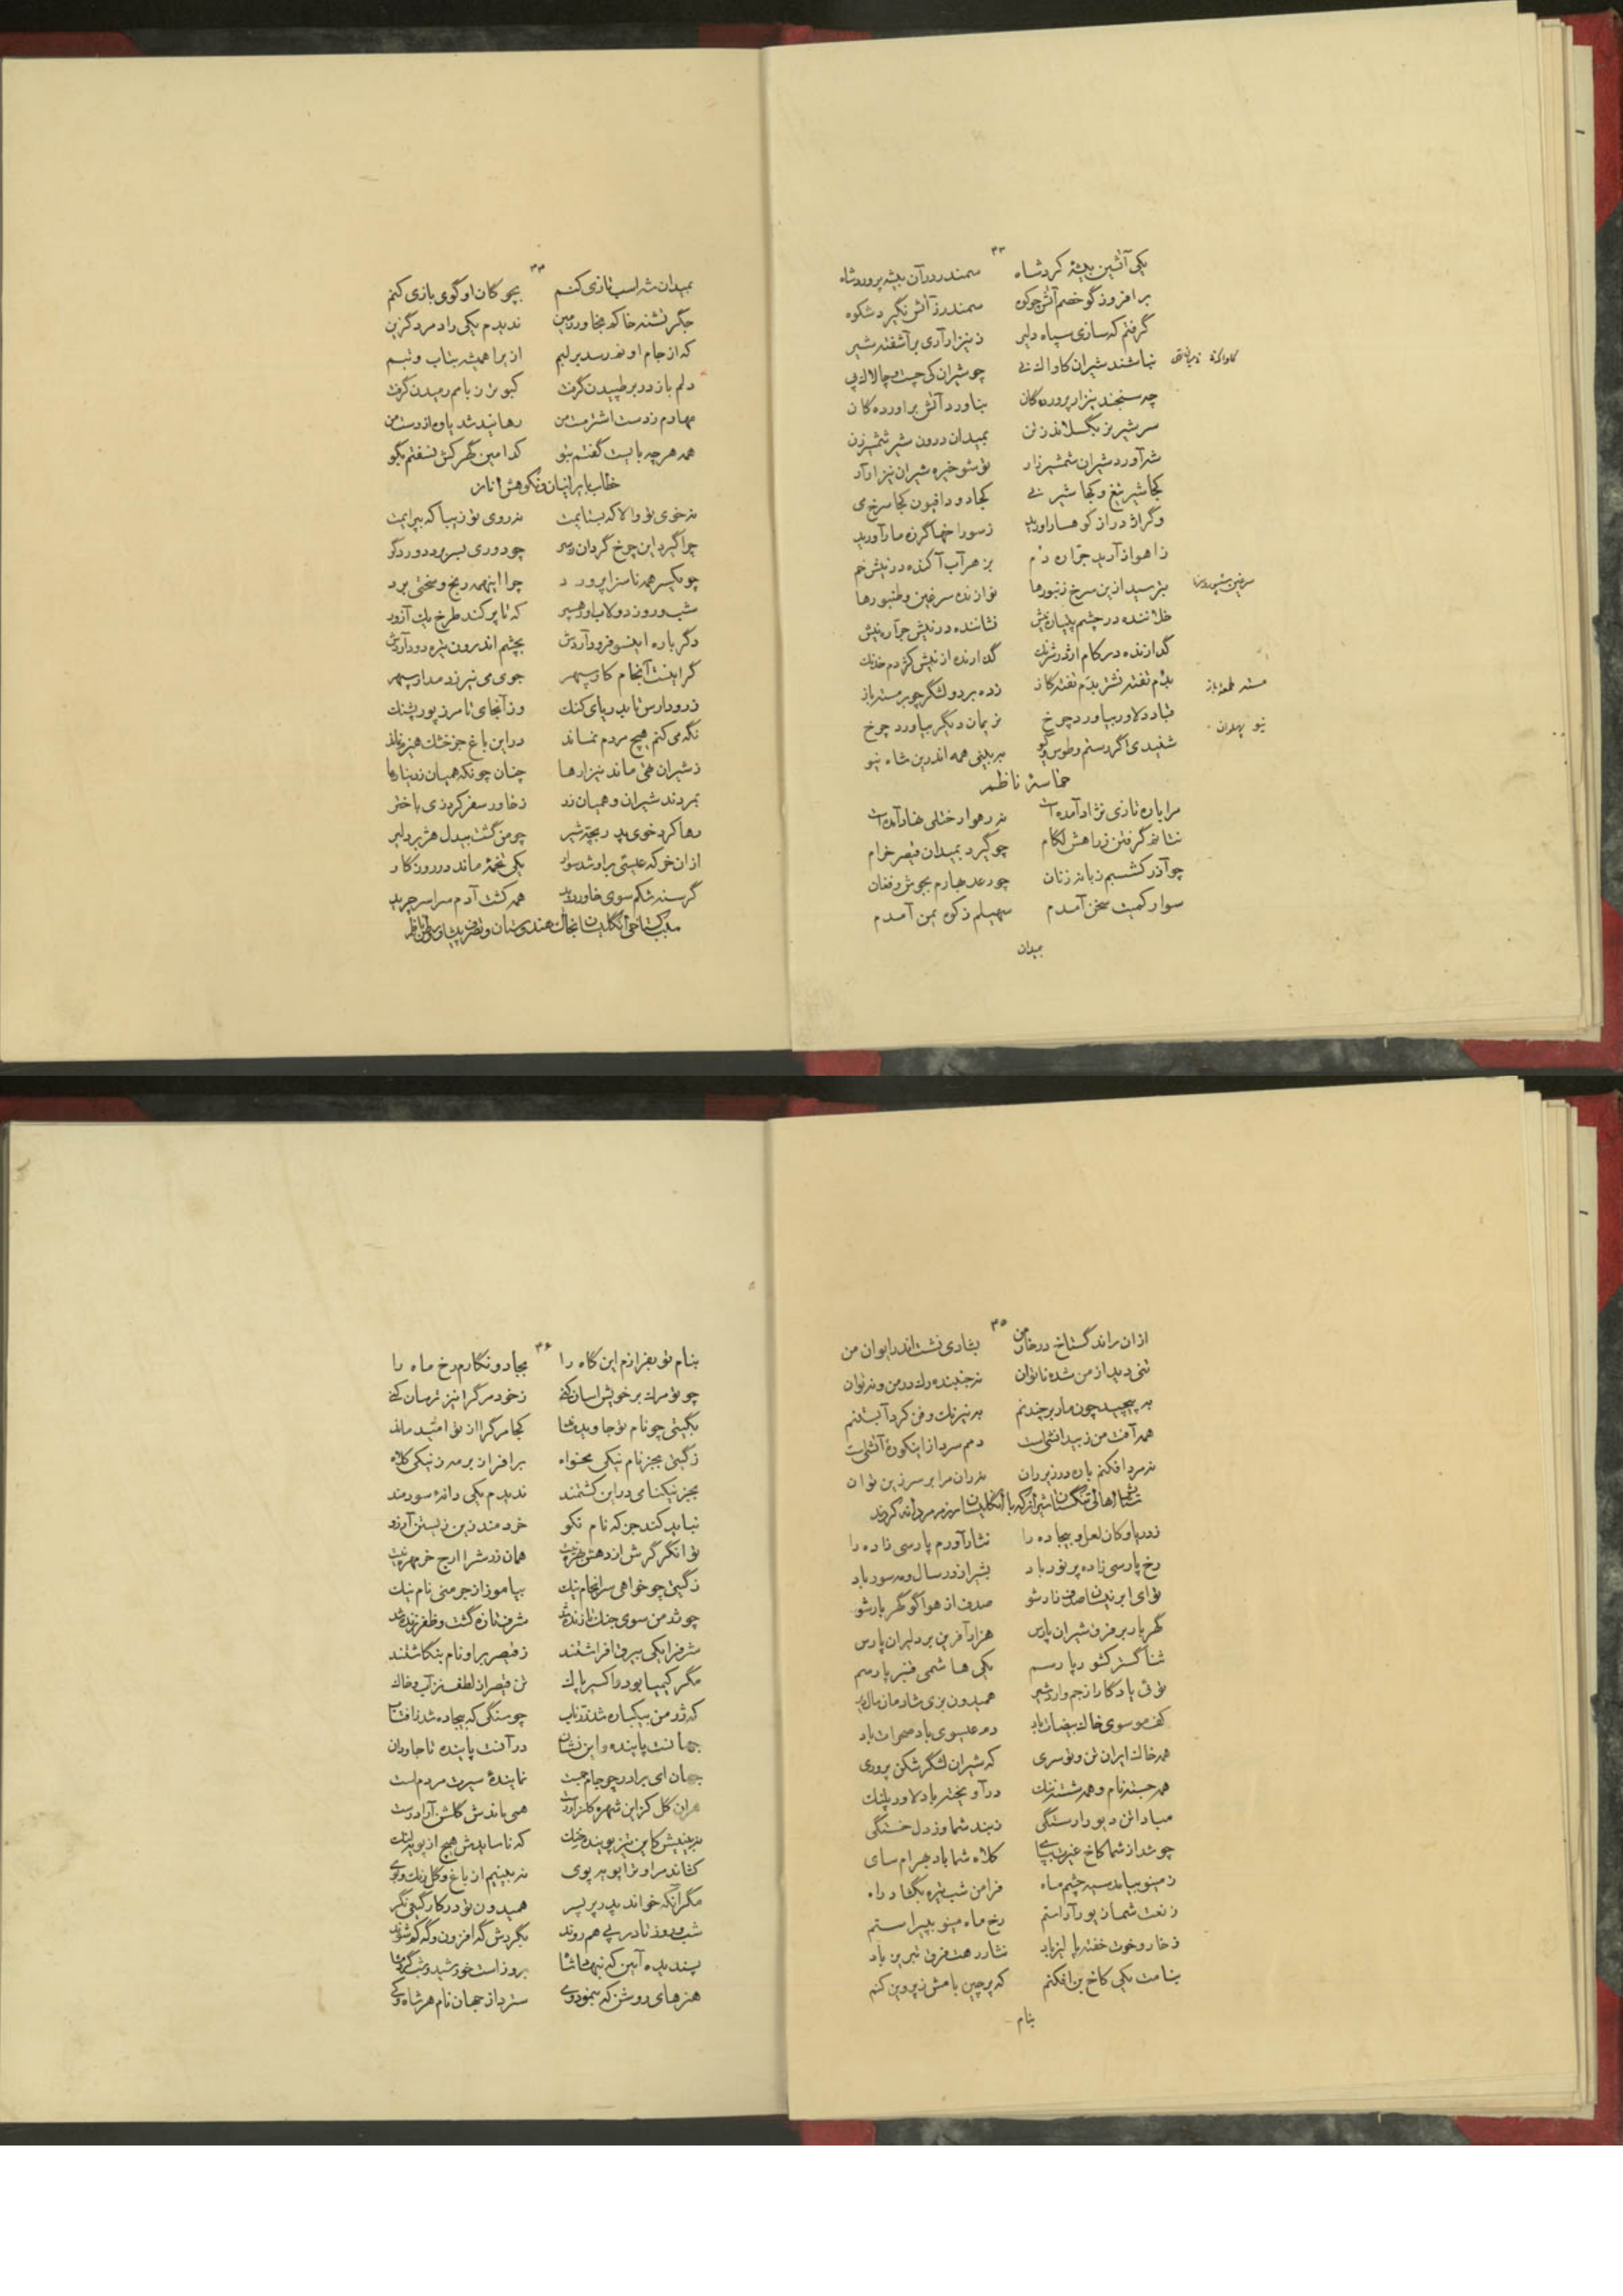 ۳۳
یکی آتشین بیشه کرد شاه سمندر در آن بیشه پرورد شاه
برافروز گو خصم آتش چو کوه سمندر ز آتش نگیرد شکوه
گرفتم که سازی سپاه دلیر ز نیزار آری برآشفته شیر
نباشند شیران کاواک نی چو شیران کی چست و چالاک پی
کاواک
چه سنجند نیزار پروردگان بناورد آتش برآوردگان
سر شیر نر بگسلاند ز تن بمیدان درون شیر شمشیرزن
شه آورد شیران شمشیرزار تو شو خیره شیران نیزار آر
کجا شیر تیغ و کجا شیر نی کجا دود افیون کجا سرخ می
وگر اژدر از کوهسار آورید ز سوراخها گرزه مار آورید
ز اهواز آرید جراره دم بزهر آب آکنده در نیش خم
بترسید ازین سرخ زنبورها نوازنده سرغین و طنبورها
سرغین
خلاننده در چشم پیلان نیش نشاننده در نیش جراره نیش
گدازنده در کام اژدر شرنگ گدازنده از نیش کژدم خدنگ
بدم تفته نشتر بدم تفته گاز زده بر دو لشگر چو بر مسته باز
مسته طعمه باز
قباد دلاور بیاورد چرخ نریمان دیگر بیاورد چرخ
نیو پهلوان
شنیدی اگر رستم و طوس و گیو ببینی همه اندرین شاه نیو
حماسهٔ ناظم
مرا باره تازی نژاد آمده است نه رهوار ختلی نهاد آمده است
نتانم گرفتن ز راهش لگام چو گیرد بمیدان قیصر خرام
چو آذر گشسبم زبانه زنان چو رعد بهارم بجوش و فغان
سوار کمیت سخن آمدم سهیلم ز کوه یمن آمدم
بمیدان
۳۴
بمیدان شه اسب تازی کنم بچوگان او گوی بازی کنم
جگر تشنه خاکم بخاور زمین ندیدم یکی راد مرد گزین
که از جام او نم رسد بر لبم از براهمیشه بتاب و تبم
دلم باز در بر طپیدن گرفت کبوتر ز بامم رمیدن گرفت
مهارم ز دست اشتر مست من رهانید شد یاوه از دست من
همه هرچه بایست گفتم بتو کدامین گهر کش نسفتم بگو
خطاب بایرانیان و نکوهش آنان
نه خوی تو والا که بستایمت نه روی تو زیبا که پیرایمت
چرا گیرد این چرخ گردان ز سر چو دوری بسر برد دور دگر
چو یکسر همه ناسزا پرورد چرا اینهمه رنج و سختی برد
شب و روز دولاب وار سپهر که تا پر کند طرخ یک آزور
دگر باره اینسو فرود آردش بچشم اندرون تیره دود آردش
گر اینست آنجام کار سپهر جوی می نیرزد مدار سپهر
ز رود ارس تا بدریای گنگ وز آنجای تا مرز پور پشنگ
نگه می کنم هیچ مردم نماند در این باغ جز خشک هیزم نماند
ز شیران تهی ماند نیزارها چنان چونکه همیان ز دینارها
بمردند شیران و همیان زر ز خاور سفر کرد زی باختر
رها کرد خوی بد ریچه شیر چو من گشت بیدل هژبر دلیر
از ان خر که عیسی براو شد سوار یکی تخمه ماند در روزگار
گرسنه شکم سوی خاور دوید همه کشت آدم سراسر چرید
سبب گستاخی انگلیسان بخاک هندوستان و تصرف
۳۵
از ان راند گستاخ در خان من بشادی نشست اندر ایوان من
تنی دید از من شده ناتوان نه جنبنده رگ در من و نه توان
بپیچید چون مار بر چندنم به نیرنگ و فن کرد آبستنم
همه آفت من ز بیدانشی است دمم سرد از اینگونهٔ آتشی است
نه مرد افکنم باره در زیر ران نه ران مرا بر سر زین توان
ستایش اهالی تنگستان شیراز که با انگلیسان رزم مردانه کردند
ز دریا و کان لعل و بیجاده را نثار آورم پارسی زاده را
رخ پارسی زاده پر نور باد بشیراز در سال و مه سور باد
تو ای ابر نیسان صدف زار شو صدف از هوا گو گهربار شو
گهر بار بر فرق شیران پارس هزار آفرین بر دلیران پارس
ثنا گستر کشور پارسم یکی هاشمی قنبر پارسم
توئی یادگار از جم و اردشیر همیدون بزی شادمان سال دیر
کف موسوی خاک بیضات باد دم عیسوی باد صحرات باد
همه خاک ایران تن و تو سری که شیران لشگر شکن پروری
همه جسته نام و همه شسته ننگ درآویخته باد لاور پلنگ
مباد این دیو را رستگی ز بند شما وز دل خستگی
چو شد از شما کاخ غیرت بپای کلاه شما باد بهرام سای
ز مینو بیامد سیه چشم ماه فرا من شب تیره بگشاد راه
ز نعت شماش زیور آراستم رخ ماه مینو بپیراستم
ز خار و خوت خفته پالیز باد نثار رهت فرق شبرین باد
بنامت یکی کاخ بن افکنم که پرچین بامش ز پروین کنم
بنام
۳۶
بنام تو بفرازم این گاه را بجادو نگارم رخ ماه را
چو تو مرگ بر خویش آسان کنی ز خود مرگ را نیز ترسان کنی
بگیتی چو نام تو جاوید ماند کجا مرگ را از تو امید ماند
ز گیتی بجز نام نیکی مخواه برافراز بر مه ز نیکی کلاه
بجز نیکنامی در این کشتمند ندیدم یکی دانهٔ سودمند
نباید کند جز که نام نکو خردمند زین زیستن آرزو
توانگر گرش از دهش بهره نیست همان زرش را ارج خرمهره نیست
ز گیتی چو خواهی سرانجام نیک بیاموز از جرمنی نام نیک
چو شد من سوی جنگ تازنده شد شرف تازه گشت و ظفر زنده شد
شرف را یکی بیرق افراشتند ز قیصر براو نام بنگاشتند
مگر کیمیا بود و اکسیر پاک تن قیصر از لطف نز آب و خاک
که شد من بیکباره شد زر ناب چو سنگی که بیجاده شد ز آفتاب
جهانت پاینده و این نشان در آنت پاینده تا جاودان
جهان ای برادر چو جام جمست نمایندهٔ سیرت مردم است
هران گل کز این شهره گلزار رست همی باندش گلشن آرا درست
نه بینیش کاین تیز پوینده خنگ که ناسایدش هیچ از پویه لنگ
کشاند مرا و ترا پوی پوی نه بینیم از باغ و گل رنگ و بوی
مگر آنکه خواند پدر بر پسر همیدون تو در کار گیتی نگر
شب و روز تا در پی هم روند بگردش گه افزون و گه کم شوند
پسندیده آیین که بنهد شها بروز است خورشید و شب گرد ماه
هنرهای روشن که بنمود وی سترد از جهان نام هر شاه کی